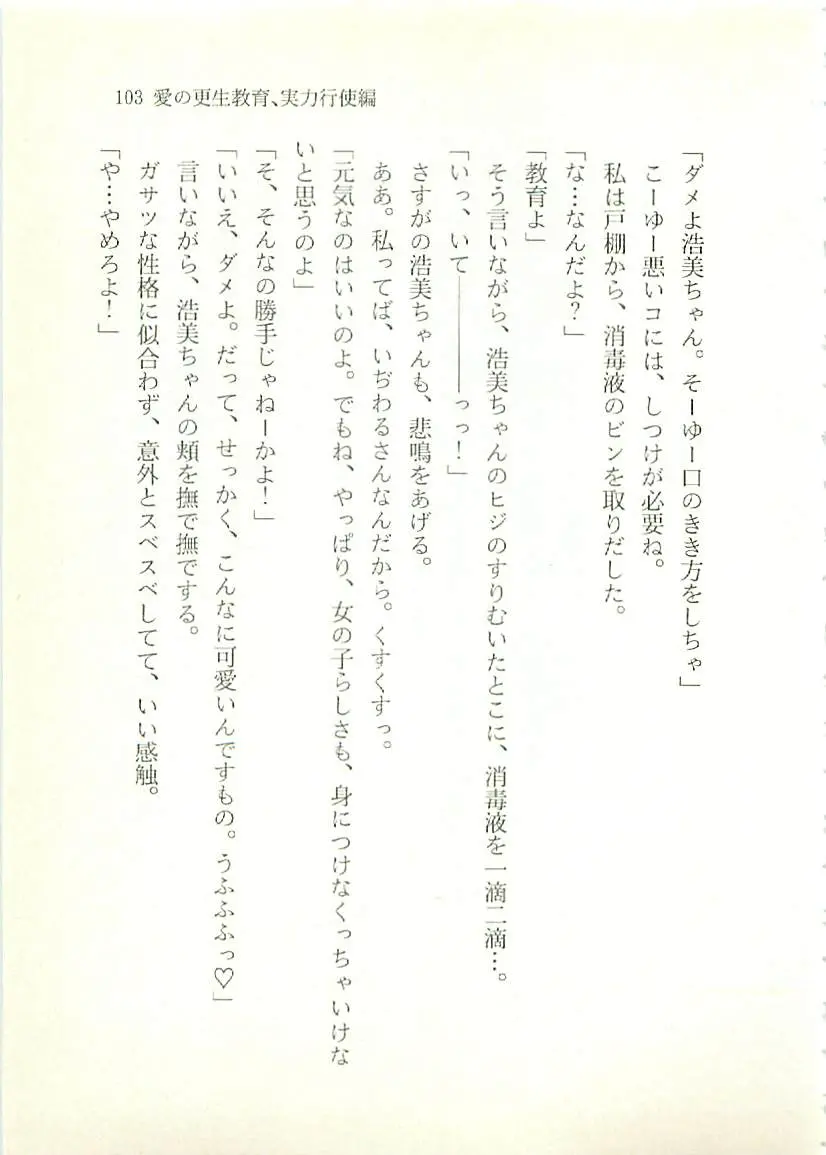 103 愛の更生教育、実力行使編
「ダメよ浩美ちゃん。そーゆー口のきき方をしちゃ」
こーゆー悪いコには、しつけが必要ね。
私は戸棚から、消毒液のビンを取りだした。
「な…なんだよ?」
「教育よ」
そう言いながら、浩美ちゃんのヒジのすりむいたとこに、消毒液を一滴二滴…。
「いっ、いて————っっ!」
さすがの浩美ちゃんも、悲鳴をあげる。
ああ。私ってば、いぢわるさんなんだから。くすくすっ。
「元気なのはいいのよ。でもね、やっぱり、女の子らしさも、身につけなくっちゃいけな
いと思うのよ」
「そ、そんなの勝手じゃねーかよ!」
「いいえ、ダメよ。だって、せっかく、こんなに可愛いんですもの。うふふふっ♡」
言いながら、浩美ちゃんの頬を撫で撫でする。
ガサツな性格に似合わず、意外とスベスベしてて、いい感触。
「や…やめろよ!」